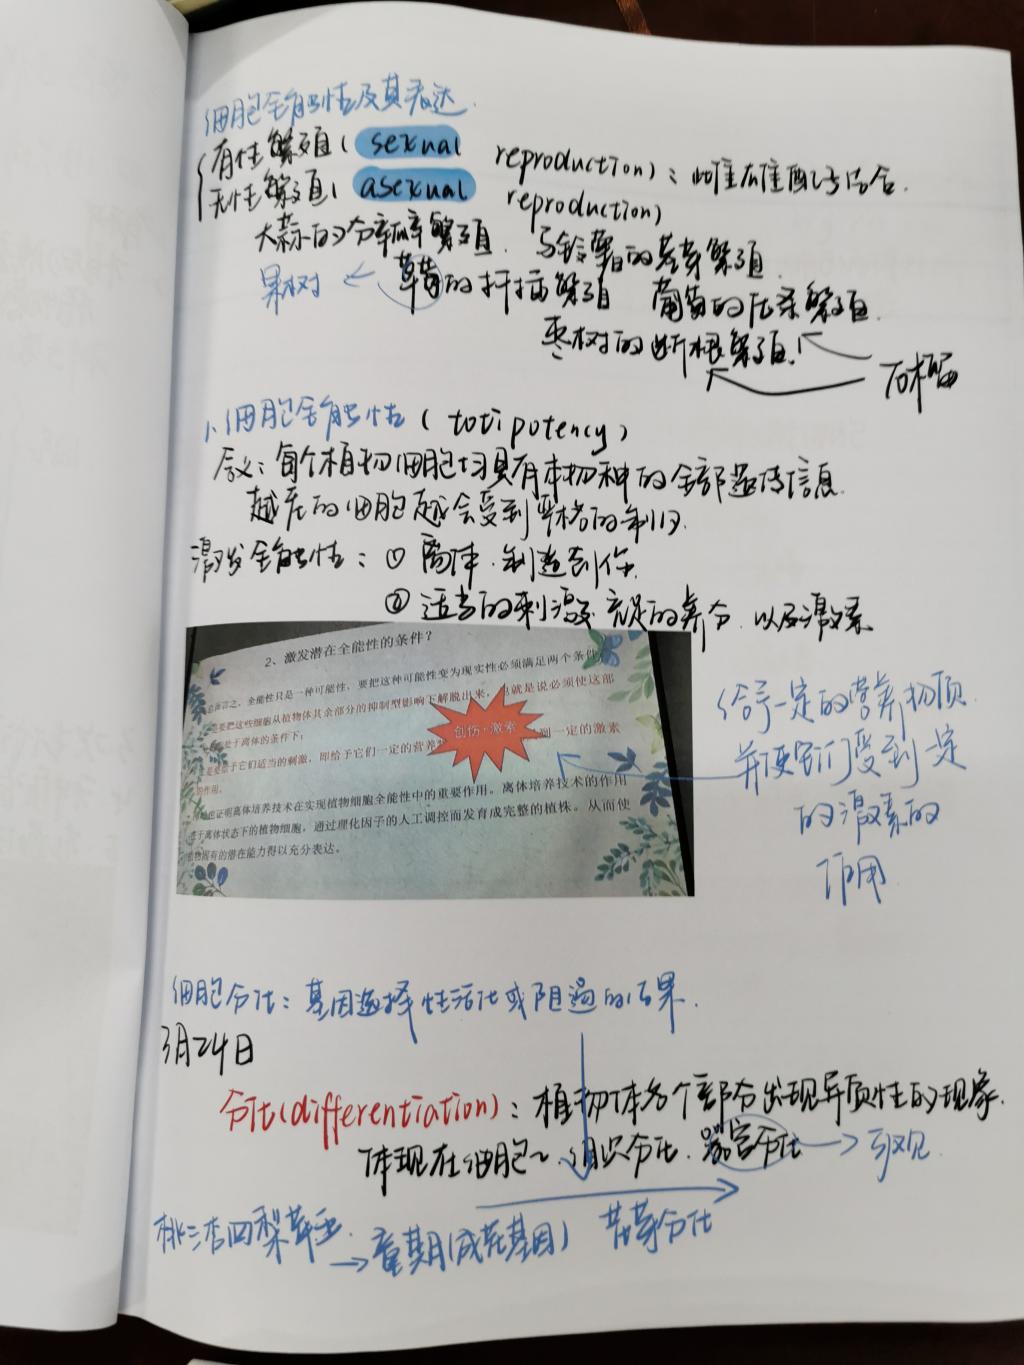 细胞全能性及其表达.
有性繁殖( sexual reproduction):雌雄配子结合.
无性繁殖( asexual reproduction)
大蒜的分瓣繁殖. 马铃薯的芽繁殖.
果树 ← 草莓的扦插繁殖 葡萄的压条繁殖.
枣树的断根繁殖.
石榴
1.细胞全能性(totipotency)
含义:每个植物细胞均具有本物种的全部遗传信息.
越老的细胞越会受到严格的制约.
激发全能性:① 离体.制造创伤.
② 适当的刺激.充足的养分.以及激素
2、激发潜在全能性的条件?
言之,全能性只是一种可能性,要把这种可能性变为现实性必须满足两个条件
要把这些细胞从植物体其余部分的抑制型影响下解脱出来,也就是说必须使这部
处于离体的条件下;
给予它们适当的刺激,即给予它们一定的营养 到一定的激素
的作用。
创伤·激素
证明离体培养技术在实现植物细胞全能性中的重要作用。离体培养技术的作用
于离体状态下的植物细胞,通过理化因子的人工调控而发育成完整的植株。从而使
固有的潜在能力得以充分表达。
给予一定的营养物质
并使它们受到一定
的激素的
作用.
细胞分化:基因选择性活化或阻遏的结果.
3月24日
分化(differentiation):植物体各个部分出现异质性的现象.
体现在细胞~.组织分化.器官分化 → 宏观.
桃三杏四梨五 → 童期(成花基因) 花芽分化